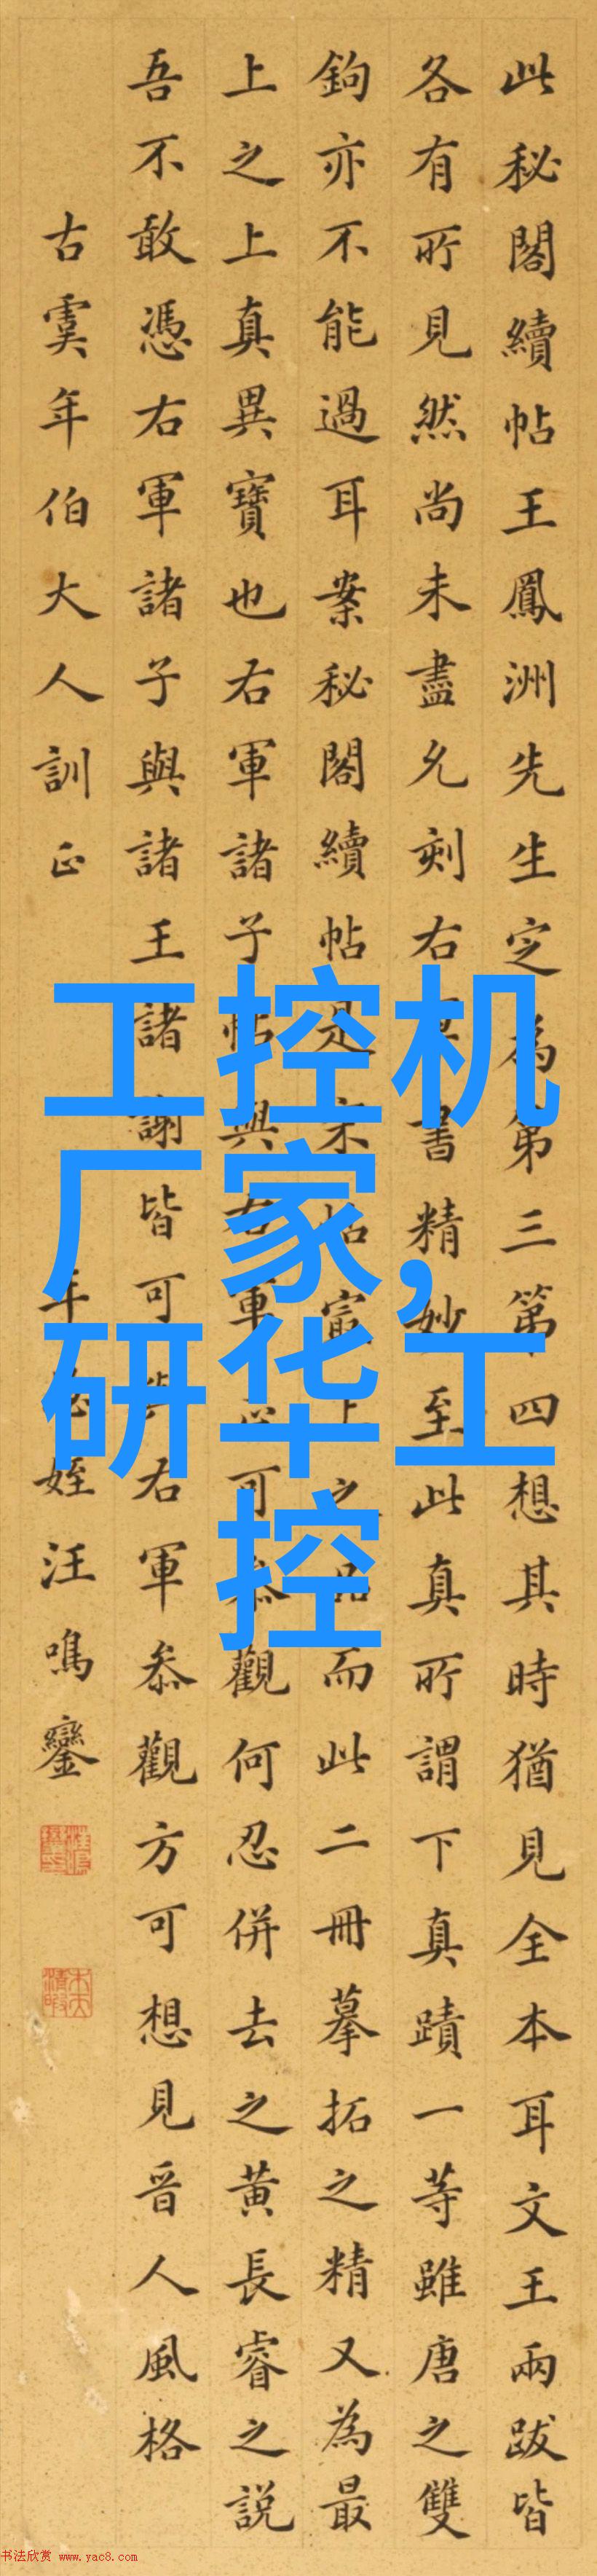 此秘閣續帖王鳳洲先生定為第三第四想其時猶見全本耳文王兩跋皆
各有所見然尚未盡允刻右軍書精妙至此真所謂下真蹟一等雖唐之雙
鉤亦不能過耳案秘閣續帖是宋帖最上之品而此二冊摹拓之精又為最
上之上真異寶也右軍諸子帖與右軍可叅觀何忍併去之黄長睿之説
吾不敢憑右軍諸子與諸王諸謝皆可與右軍叅觀方可想見晉人風格
古虞年伯大人訓正
年姪汪鳴鑾
工控机
厂家,
研华工
控
书法欣赏 www.yac8.com